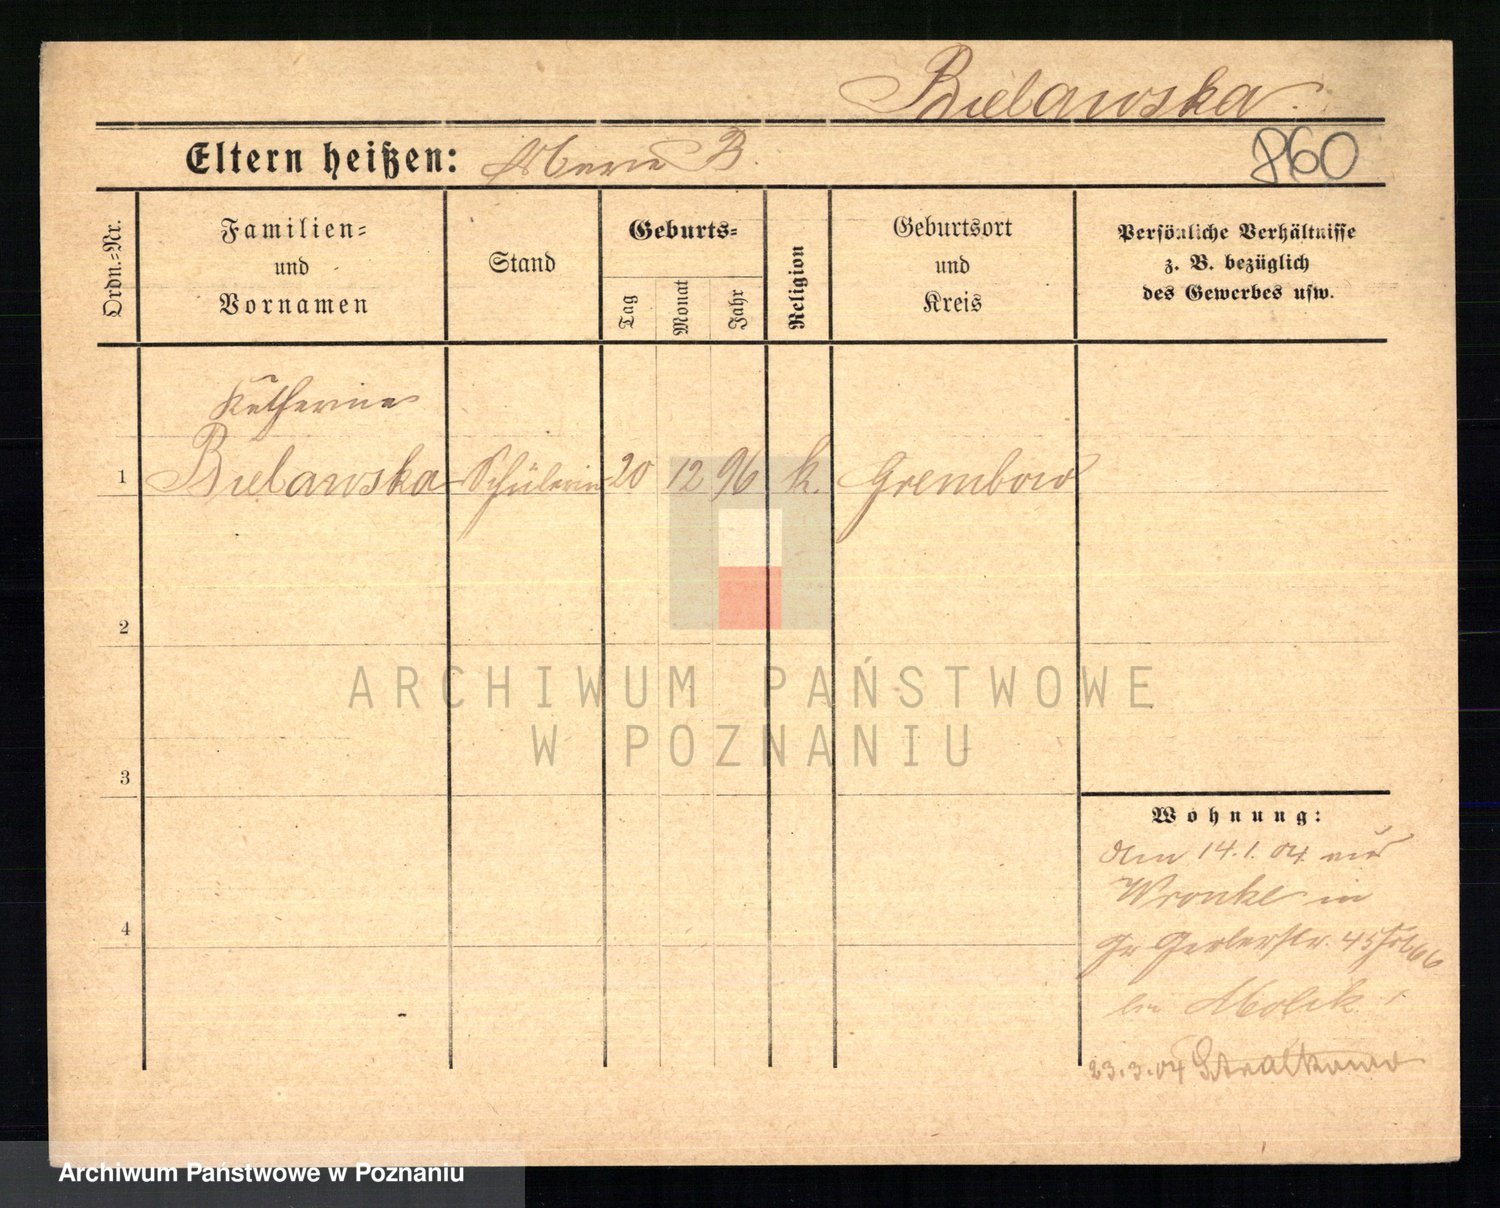 Bielawska.
Eltern heißen: Marie B.
860
Ordn.-Nr.
Familien-
und
Vornamen
Stand
Geburts-
Tag
Monat
Jahr
Religion
Geburtsort
und
Kreis
Persönliche Verhältnisse
z. B. bezüglich
des Gewerbes usw.
Katharina
1 Bielawska Schülerin 20 12 96 k. Grembow
2
3
4
Wohnung:
Am 14.1.04 aus
Wronke in
Gr Gerberstr. 45
bei
23.3.04 Stralkowo
ARCHIWUM PAŃSTWOWE
W POZNANIU
Archiwum Państwowe w Poznaniu